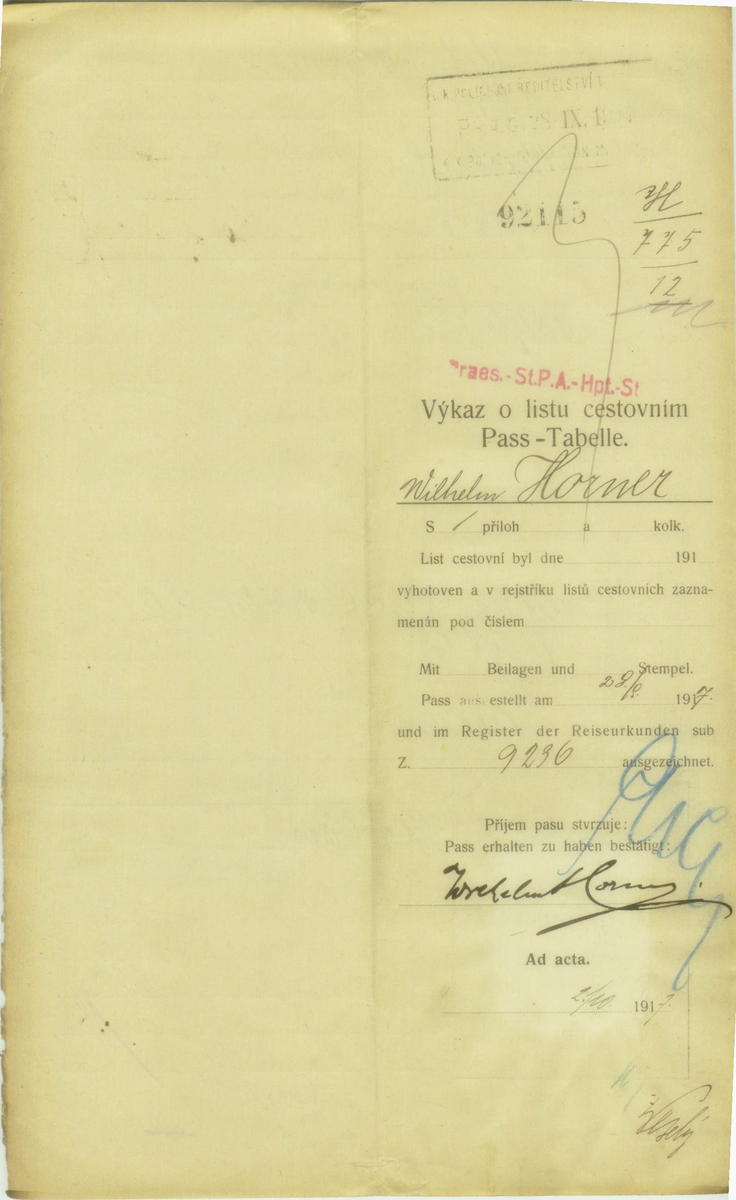 K. POLICEJNÍ ŘEDITELSTVÍ V
28 IX. 1
92115
H
775
12
Praes.-St.P.A.-Hpt.-St
Výkaz o listu cestovním
Pass-Tabelle.
Wilhelm Horner
S 1 příloh a kolk.
List cestovní byl dne 191
vyhotoven a v rejstříku listů cestovních zazna-
menán pod číslem
Mit Beilagen und Stempel.
Pass ausgestellt am 28/9. 1917.
und im Register der Reiseurkunden sub
Z. 9236 ausgezeichnet.
Příjem pasu stvrzuje:
Pass erhalten zu haben bestätigt:
Wilhelm Horner
Ad acta.
2/10. 1917.
Veselý